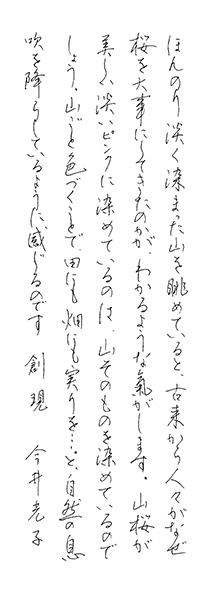 ほんのり淡く染まった山を眺めていると、古来から人々がなぜ
桜を大事にしてきたのかが、わかるような氣がします。山桜が
美しい淡いピンクに染めているのは、山そのものを染めているので
しょう。山ごと色づくことで、田にも畑にも実りを…と、自然の息
吹を降らしているように、感じるのです　創現　今井光子